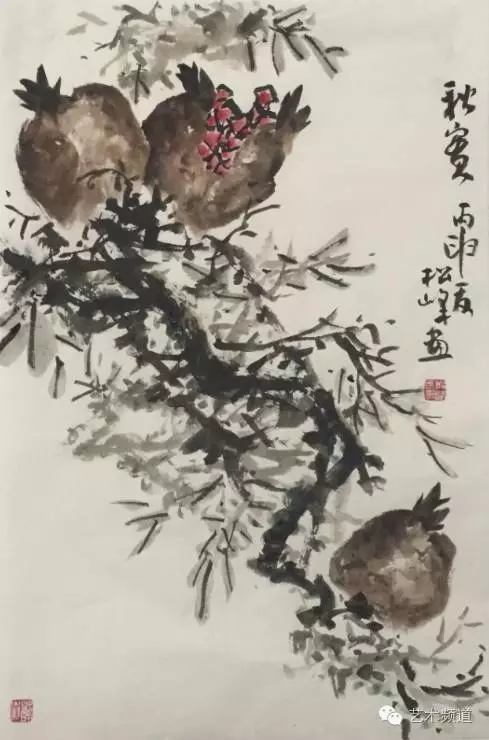 秋实
丙申夏
松峰画
艺术频道